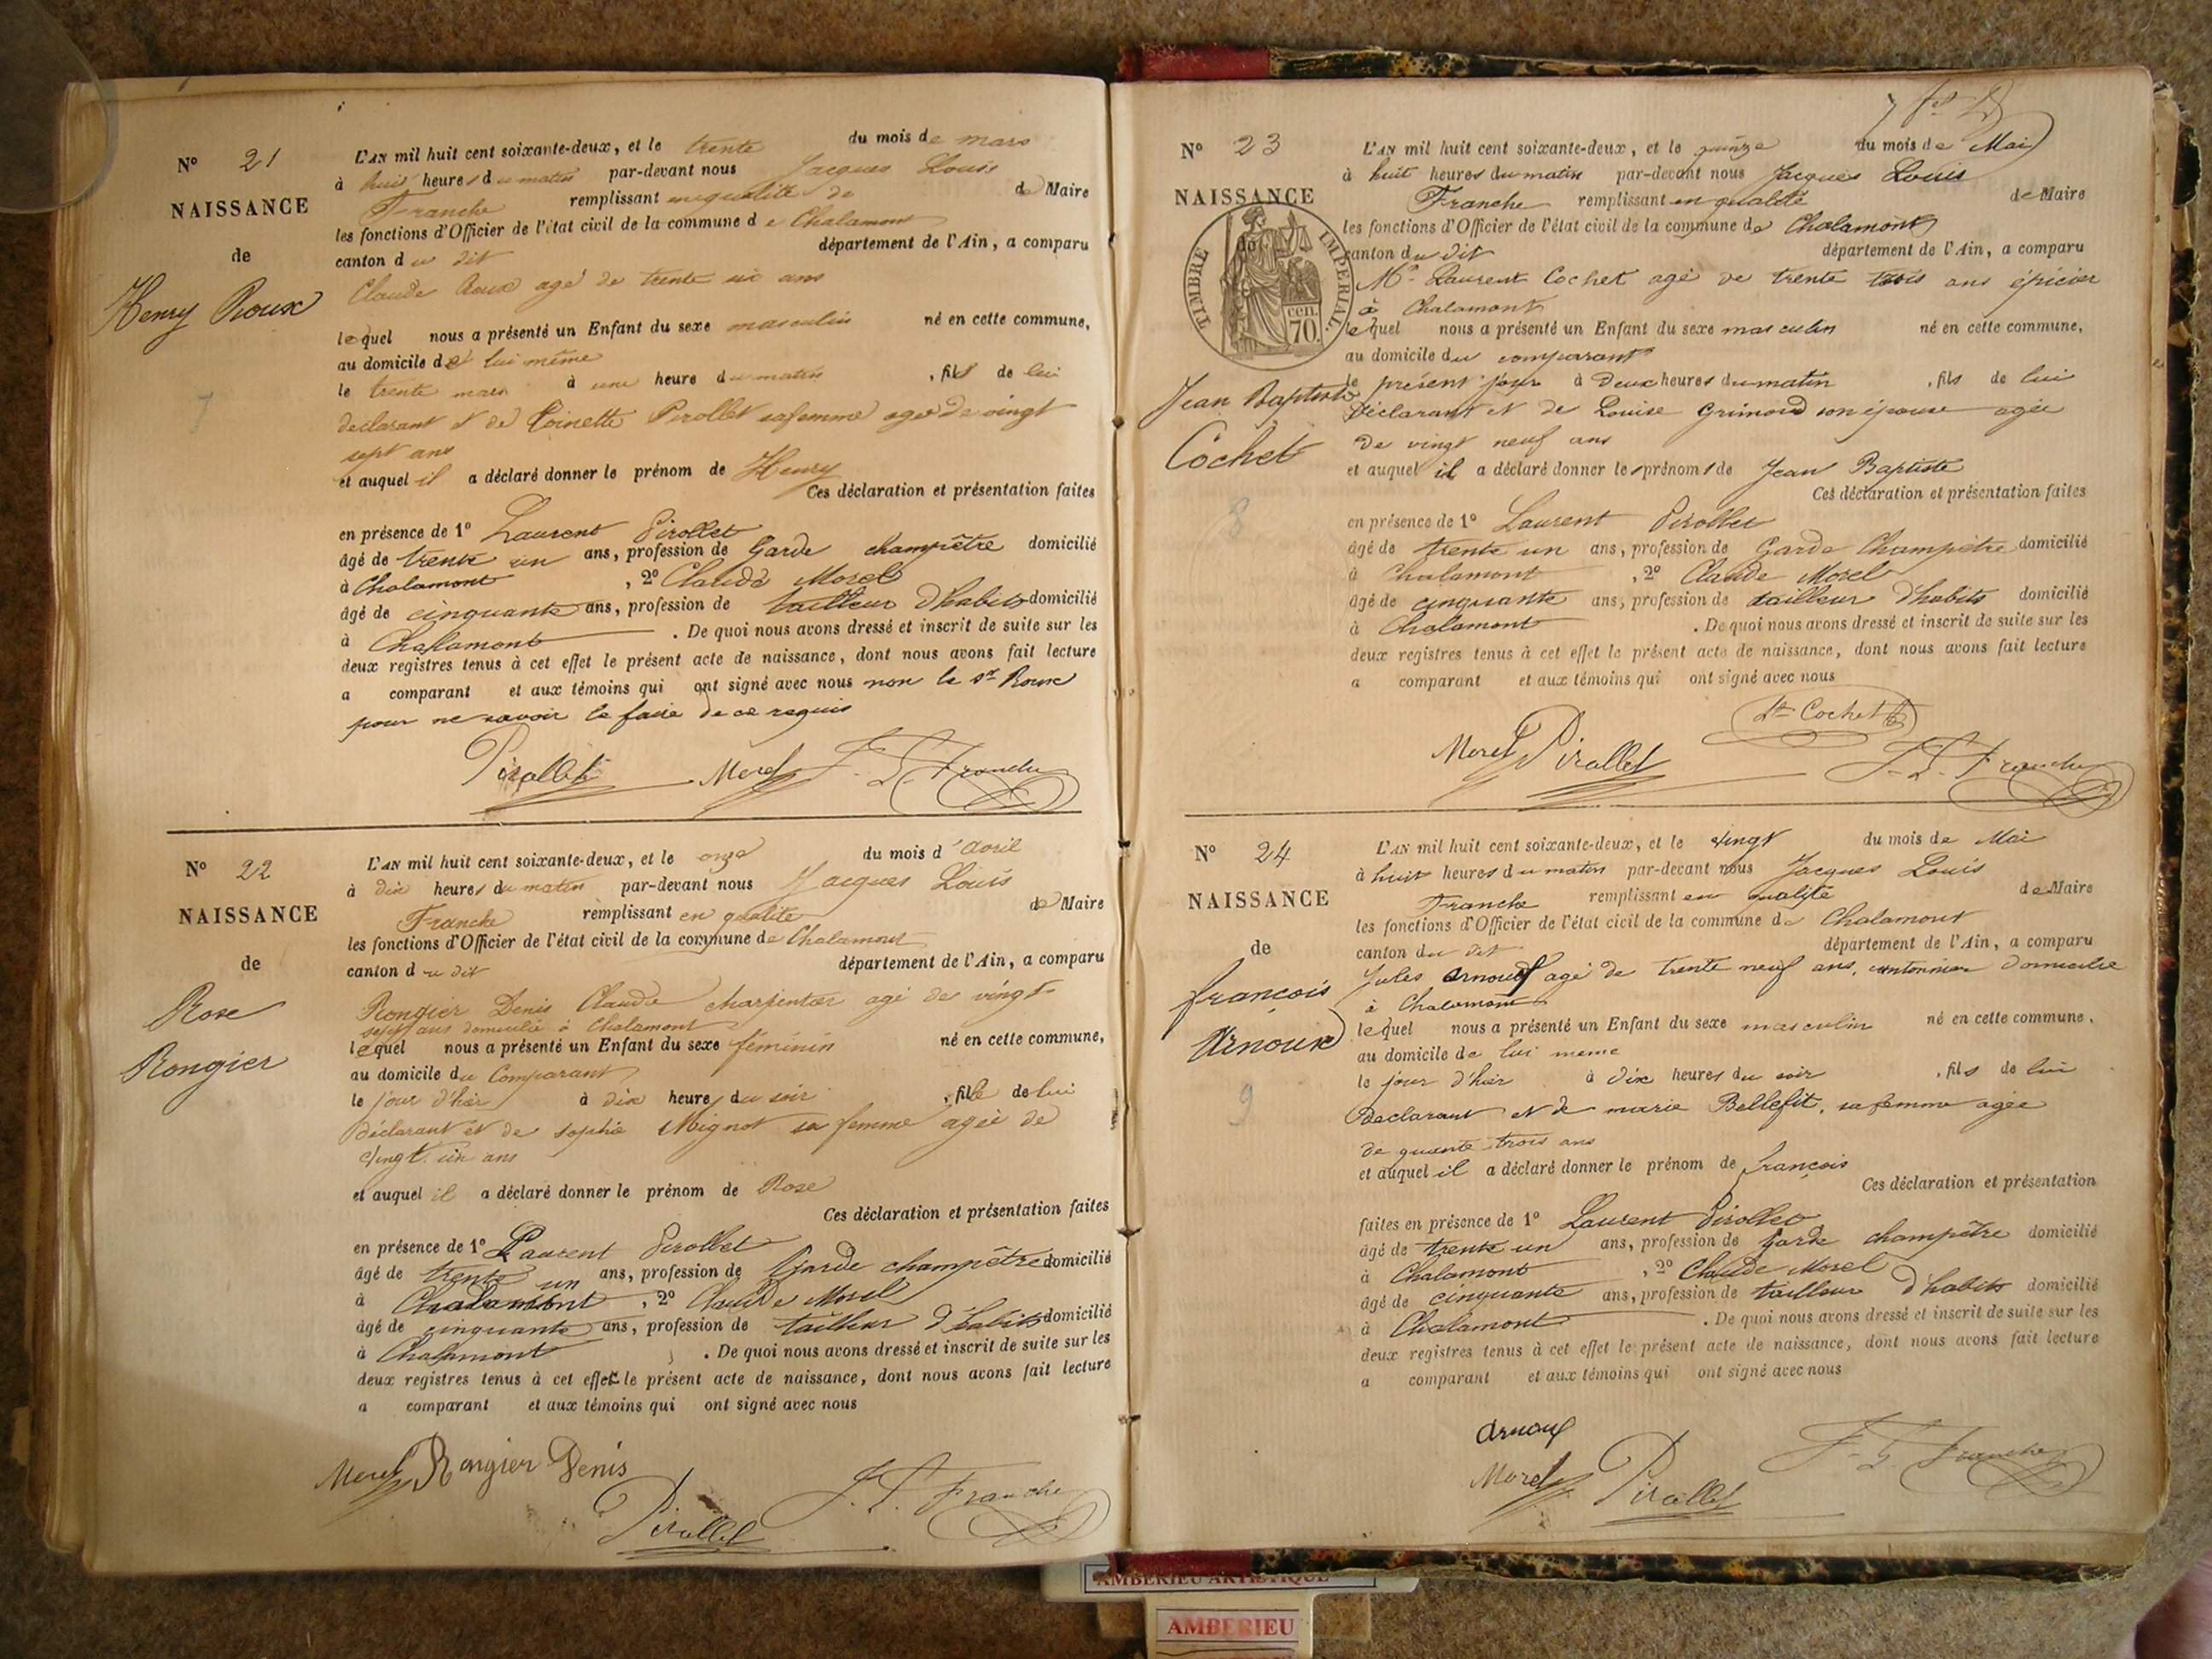 N° 21
NAISSANCE
de
Henry Roux
7
L'AN mil huit cent soixante-deux, et le trente du mois de mars
à huit heures du matin par-devant nous Jacques Louis
Franche remplissant en qualité de de Maire
les fonctions d'Officier de l'état civil de la commune de Chalamont
canton du dit département de l'Ain, a comparu
Claude Roux agé de trente six ans
lequel nous a présenté un Enfant du sexe masculin né en cette commune,
au domicile de lui même
le trente mars à une heure du matin , fils de lui
déclarant et de Toinette Pirollet sa femme agée de vingt
sept ans
et auquel il a déclaré donner le prénom de Henry
Ces déclaration et présentation faites
en présence de 1° Laurent Pirollet
âgé de trente un ans, profession de Garde champêtre domicilié
à Chalamont , 2° Claude Morel
âgé de cinquante ans, profession de tailleur d'habits domicilié
à Chalamont . De quoi nous avons dressé et inscrit de suite sur les
deux registres tenus à cet effet le présent acte de naissance, dont nous avons fait lecture
a comparant et aux témoins qui ont signé avec nous non le sr Roux
pour ne savoir le faire de ce requis
Pirollet Morel J. L. Franche
N° 22
NAISSANCE
de
Rose
Rongier
L'AN mil huit cent soixante-deux, et le onze du mois d'avril
à dix heures du matin par-devant nous Jacques Louis
Franche remplissant en qualité de Maire
les fonctions d'Officier de l'état civil de la commune de Chalamont
canton du dit département de l'Ain, a comparu
Rongier Denis Claude charpentier agé de vingt
sept ans domicilié à Chalamont
lequel nous a présenté un Enfant du sexe féminin né en cette commune,
au domicile du Comparant
le jour d'hier à dix heures du soir , fille de lui
déclarant et de Sophie Mignot sa femme agée de
vingt un ans
et auquel il a déclaré donner le prénom de Rose
Ces déclaration et présentation faites
en présence de 1° Laurent Pirollet
âgé de trente un ans, profession de Garde champêtre domicilié
à Chalamont , 2° Claude Morel
âgé de cinquante ans, profession de tailleur d'habits domicilié
à Chalamont . De quoi nous avons dressé et inscrit de suite sur les
deux registres tenus à cet effet le présent acte de naissance, dont nous avons fait lecture
a comparant et aux témoins qui ont signé avec nous
Morel Rongier Denis
Pirollet J. L. Franche
N° 23
NAISSANCE
de
TIMBRE IMPERIAL
cen. 70.
Jean Baptiste
Cochet
8
L'AN mil huit cent soixante-deux, et le quinze du mois de Mai
à huit heures du matin par-devant nous Jacques Louis
Franche remplissant en qualité de Maire
les fonctions d'Officier de l'état civil de la commune de Chalamont
canton du dit département de l'Ain, a comparu
Mr Laurent Cochet agé de trente trois ans épicier
à Chalamont
lequel nous a présenté un Enfant du sexe masculin né en cette commune,
au domicile du comparant
le présent jour à deux heures du matin , fils de lui
Déclarant et de Louise Grimond son épouse agée
de vingt neuf ans
et auquel il a déclaré donner les prénoms de Jean Baptiste
Ces déclaration et présentation faites
en présence de 1° Laurent Pirollet
âgé de trente un ans, profession de Garde Champêtre domicilié
à Chalamont , 2° Claude Morel
âgé de cinquante ans, profession de tailleur d'habits domicilié
à Chalamont . De quoi nous avons dressé et inscrit de suite sur les
deux registres tenus à cet effet le présent acte de naissance, dont nous avons fait lecture
a comparant et aux témoins qui ont signé avec nous
Lt Cochet
Morel Pirollet J. L. Franche
N° 24
NAISSANCE
de
françois
Arnoux
9
L'AN mil huit cent soixante-deux, et le vingt du mois de Mai
à huit heures du matin par-devant nous Jacques Louis
Franche remplissant en qualité de Maire
les fonctions d'Officier de l'état civil de la commune de Chalamont
canton du dit département de l'Ain, a comparu
Jules Arnoux agé de trente neuf ans, cantonnier domicilié
à Chalamont
lequel nous a présenté un Enfant du sexe masculin né en cette commune,
au domicile de lui meme
le jour d'hier à dix heures du soir , fils de lui
Déclarant et de marie Bellefit, sa femme agée
de quarente trois ans
et auquel il a déclaré donner le prénom de françois
Ces déclaration et présentation
faites en présence de 1° Laurent Pirollet
âgé de trente un ans, profession de garde champêtre domicilié
à Chalamont , 2° Claude Morel
âgé de cinquante ans, profession de tailleur d'habits domicilié
à Chalamont . De quoi nous avons dressé et inscrit de suite sur les
deux registres tenus à cet effet le présent acte de naissance, dont nous avons fait lecture
a comparant et aux témoins qui ont signé avec nous
Arnoux
Morel Pirollet J. L. Franche
AMBERIEU ARTISTIQUE
AMBERIEU